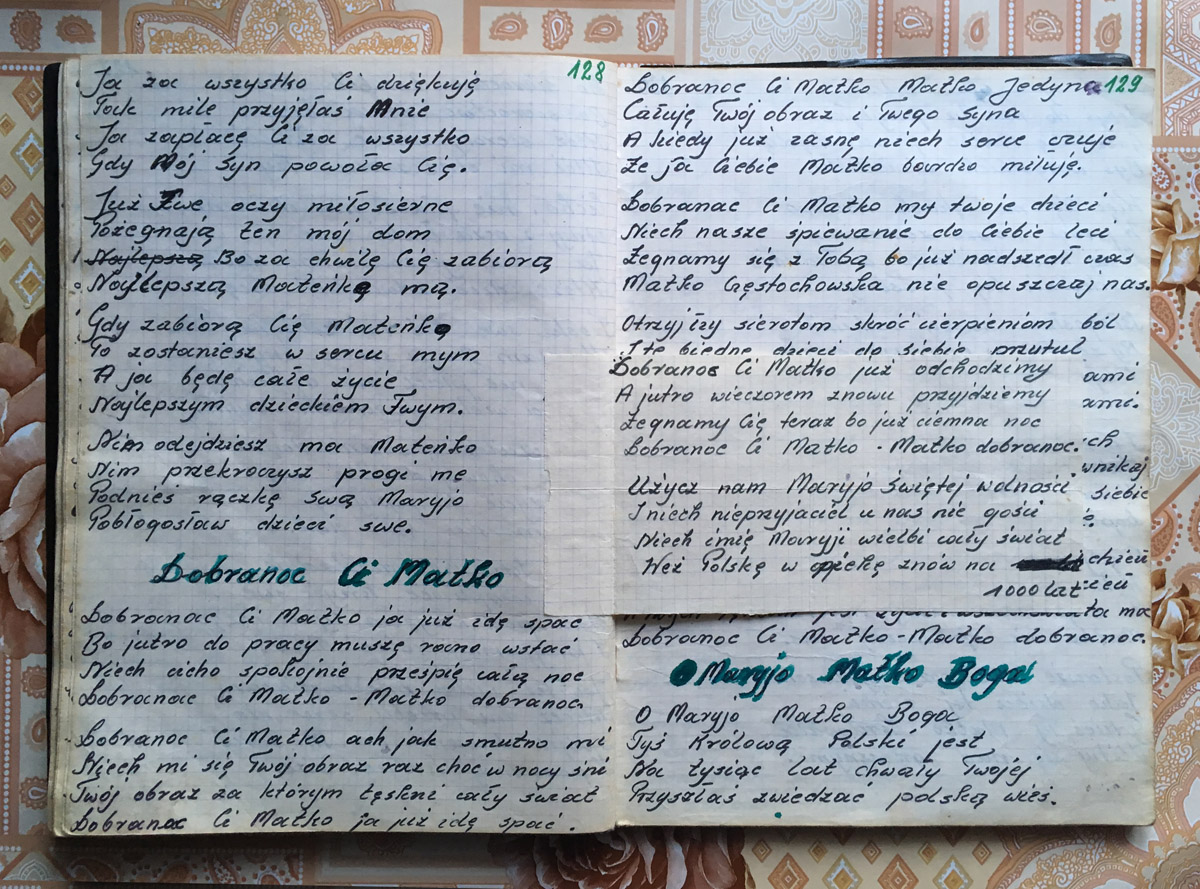 128
Ja za wszystko Ci dziękuję
Tak mile przyjęłaś Mnie
Ja zapłacę Ci za wszystko
Gdy Mój Syn powoła Cię.
Już Twe oczy miłosierne
Pożegnają ten mój dom
Najlepszą Bo za chwilę Cię zabiorą
Najlepszą Mateńkę mą.
Gdy zabiorą Cię Mateńkę
To zostaniesz w sercu mym
A ja będę całe życie
Najlepszym dzieckiem Twym.
Nim odejdziesz ma Mateńko
Nim przekroczysz progi me
Podnieś rączkę swą Maryjo
Pobłogosław dzieci swe.
Dobranoc Ci Matko
Dobranac Ci Matko ja już idę spać
Bo jutro do pracy muszę rano wstać
Niech cicho spokojnie prześpię całą noc
Dobranac Ci Matko - Matko dobranoc
Dobranoc Ci Matko ach jak smutno mi
Niech mi się Twój obraz raz choć w nocy śni
Twój obraz za którym tęskni cały świat
Dobranac Ci Matko ja już idę spać.
129
Dobranoc Ci Matko Matko Jedyna
Całuję Twój obraz i Twego Syna
A kiedy już zasnę niech serce czuje
Że ja Ciebie Matko bardzo miłuję.
Dobranac Ci Matko my twoje dzieci
Niech nasze śpiewanie do Ciebie leci
Żegnamy się z Tobą bo już nadszedł czas
Matko Częstochowska nie opuszczaj nas.
Otrzyj łzy sierotom skróć cierpieniom ból
I te biedne dzieci do siebie przytul
Dobranoc Ci Matko już odchodzimy
ami
A jutro wieczorem znowu przyjdziemy
ami.
Żegnamy Cię teraz bo już ciemna noc
Dobranoc Ci Matko - Matko dobranoc.
ch
wnikaj
Użycz nam Maryjo Świętej wolności
siebie
I niech nieprzyjaciel u nas nie gości
Niech imię Maryji wielbi cały świat
Weź Polskę w opiekę znów na
chień
1000 lat
cień
ta ma
Dobranoc Ci Matko - Matko dobranoc.
O Maryjo Matko Boga
O Maryjo Matko Boga
Tyś Królową Polski jest
Na tysiąc lat chwały Twojej
Przyszłaś zwiedzać polską wieś.